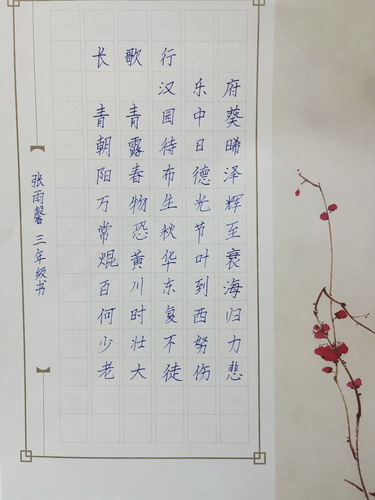 长歌行
汉乐府
青青园中葵
朝露待日晞
阳春布德泽
万物生光辉
常恐秋节至
焜黄华叶衰
百川东到海
何时复西归
少壮不努力
老大徒伤悲
张雨馨 三年级书